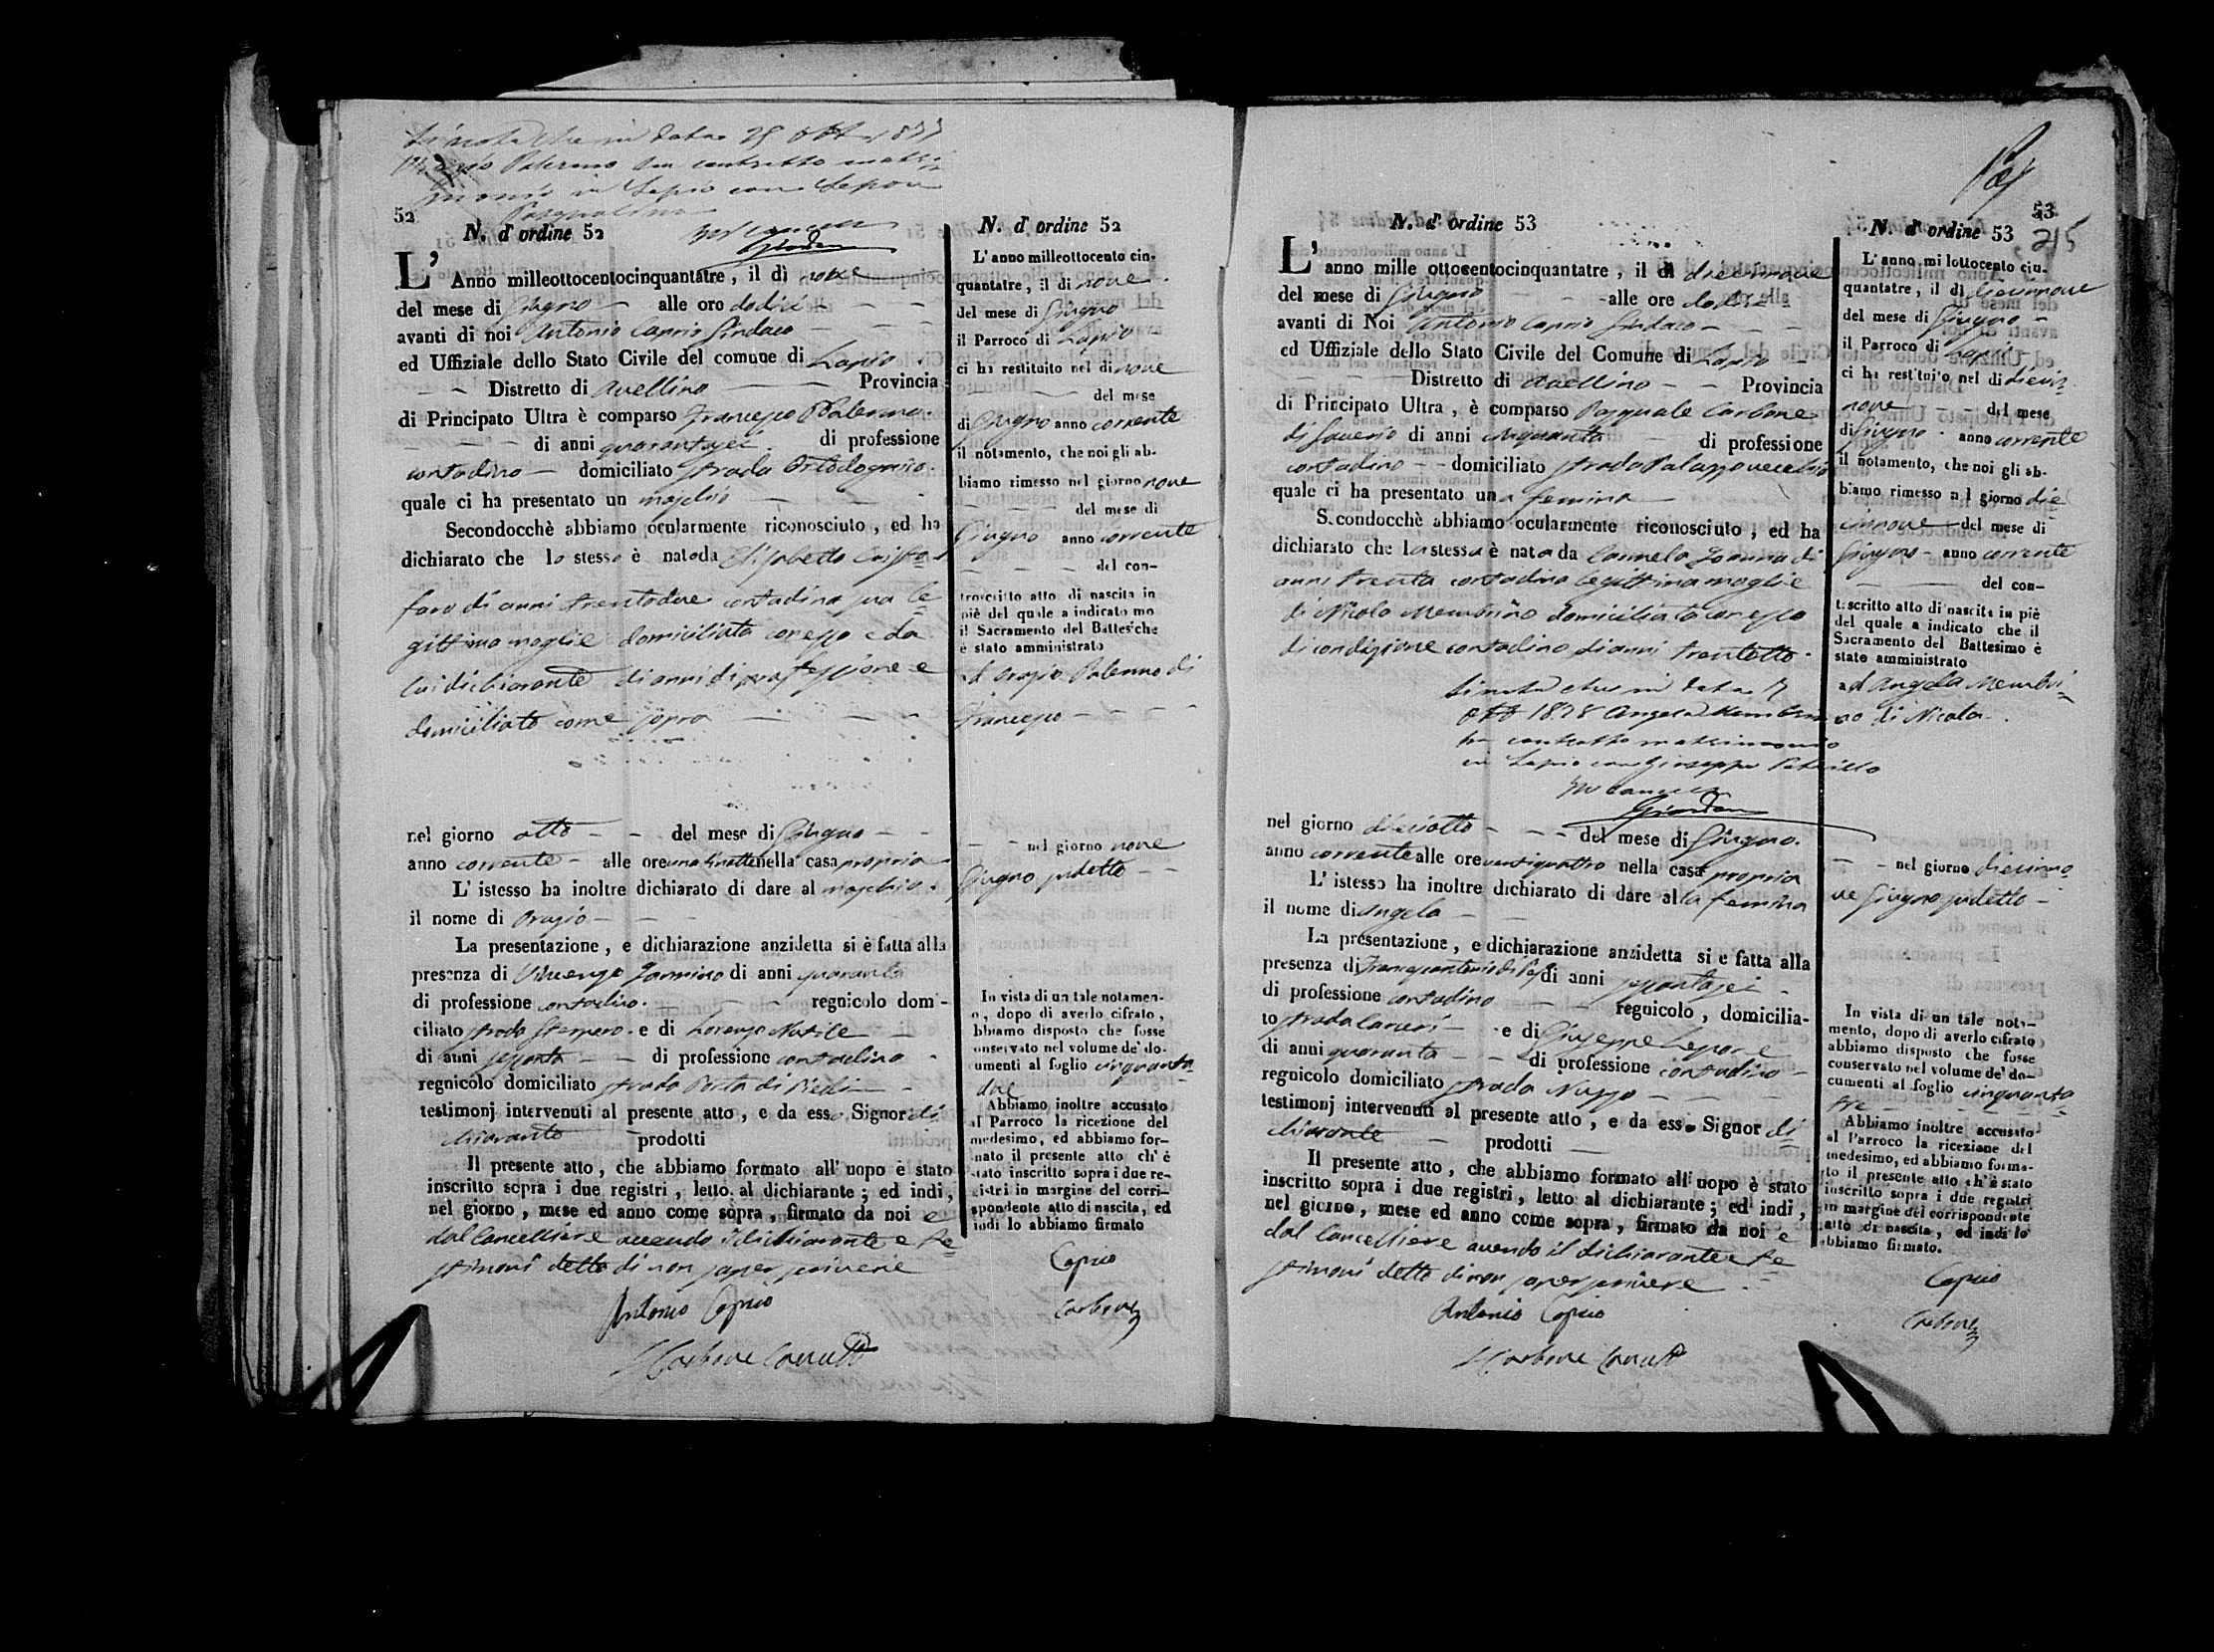 Si nota che in data 25 ott 1877
Orazio Palermo ha contratto matri-
monio in Lapio con Lepore
Pasqualina
52
N. d' ordine 52
L' Anno milleottocentocinquantatre, il dì nove
del mese di Giugno alle ore dodici
avanti di noi Antonio Caprio Sindaco
ed Uffiziale dello Stato Civile del comune di Lapio
Distretto di Avellino Provincia
di Principato Ultra è comparso Francesco Palermo
di anni quarantasei di professione
contadino domiciliato strada
quale ci ha presentato un maschio
Secondocchè abbiamo ocularmente riconosciuto, ed ha
dichiarato che lo stesso è nato da Elisabetta
faro di anni trentadue contadina sua le=
gittima moglie domiciliata con esso e da
lui dichiarante di anni di professione e
domiciliato come sopra
nel giorno otto del mese di Giugno
anno corrente alle ore una nella casa propria
L' istesso ha inoltre dichiarato di dare al maschio
il nome di Orazio
La presentazione, e dichiarazione anzidetta si è fatta alla
presenza di Vincenzo Iannino di anni quaranta
di professione contadino regnicolo domi-
ciliato strada e di Lorenzo Natile
di anni di professione contadino
regnicolo domiciliato strada Porta di
testimonj intervenuti al presente atto, e da esso Signor di
chiarante prodotti
Il presente atto, che abbiamo formato all' uopo è stato
inscritto sopra i due registri, letto al dichiarante; ed indi,
nel giorno, mese ed anno come sopra, firmato da noi e
dal Cancelliere avendo il dichiarante e te=
stimoni detto di non saper scrivere
Antonio Caprio
Carbone
N. d' ordine 52
L' anno milleottocento cin-
quantatre, il di nove
del mese di Giugno
il Parroco di Lapio
ci ha restituito nel di nove
del mese
di Giugno anno corrente
il notamento, che noi gli ab-
biamo rimesso nel giorno nove
del mese di
Giugno anno corrente
del con-
troscritto atto di nascita in
piè del quale a indicato mo
il Sacramento del Battes'che
è stato amministrato
ad Orazio Palermo di
Francesco
nel giorno nove
Giugno sudetto
In vista di un tale notamen-
o, dopo di averlo cifrato,
bbiamo disposto che fosse
onservato nel volume de' do-
umenti al foglio cinquanta=
due
Abbiamo inoltre accusato
al Parroco la ricezione del
medesimo, ed abbiamo for-
mato il presente atto ch' è
stato inscritto sopra i due re-
gistri in margine del corri-
spondente atto di nascita, ed
indi lo abbiamo firmato
Caprio
Carbone
53
215
N. d' ordine 53
L' anno mille ottocentocinquantatre, il di diecinnove
del mese di Giugno alle ore dodici
avanti di Noi Antonio Caprio Sindaco
ed Uffiziale dello Stato Civile del Comune di Lapio
Distretto di Avellino Provincia
di Principato Ultra, è comparso Pasquale Carbone
di Saverio di anni cinquanta di professione
contadino domiciliato strada Palazzo vecchio
quale ci ha presentato una femina
Secondocchè abbiamo ocularmente riconosciuto, ed ha
dichiarato che la stessa è nata da Carmela Ioanna di
anni trenta contadina legittima moglie
di Nicola Membrino domiciliata con esso
di condizione contadino di anni trentotto
Si nota che in data 17
ott 1878 Angela Membrino
ha contratto matrimonio
in Lapio con Giuseppe Petrillo
nel giorno dieciotto del mese di Giugno.
anno corrente alle ore ventiquattro nella casa propria
L' istesso ha inoltre dichiarato di dare alla femina
il nome di Angela
La presentazione, e dichiarazione anzidetta si e fatta alla
presenza di di anni sessantasei
di professione contadino regnicolo, domicilia-
to strada e di Giuseppe Lepore
di anni quaranta di professione contadino
regnicolo domiciliato strada
testimonj intervenuti al presente atto, e da esso Signor di=
chiarante prodotti
Il presente atto, che abbiamo formato all' uopo è stato
inscritto sopra i due registri, letto al dichiarante; ed indi,
nel giorno, mese ed anno come sopra, firmato da noi e
dal Cancelliere avendo il dichiarante e te=
stimoni detto di non saper scrivere
Antonio Caprio
Carbone
N. d' ordine 53
L' anno mi lottocento cin-
quantatre, il dì diecinnove
del mese di Giugno
il Parroco di Lapio
ci ha restituito nel di diecin=
nove del mese
di Giugno anno corrente
il notamento, che noi gli ab-
biamo rimesso nel giorno die
cinnove del mese di
Giugno anno corrente
del con-
troscritto atto di nascita in piè
del quale a indicato che il
Sacramento del Battesimo è
stato amministrato
ad Angela Membri=
no di Nicola
nel giorno diecinno
ve Giugno sudetto
In vista di un tale nota-
mento, dopo di averlo cifrato
abbiamo disposto che fosse
conservato nel volume de' do-
cumenti al foglio cinquanta=
tre
Abbiamo inoltre accusato
al Parroco la ricezione del
medesimo, ed abbiamo forma-
to il presente atto ch' è stato
inscritto sopra i due registri
in margine del corrispondente
atto di nascita, ed indi lo
abbiamo firmato.
Caprio
Carbone